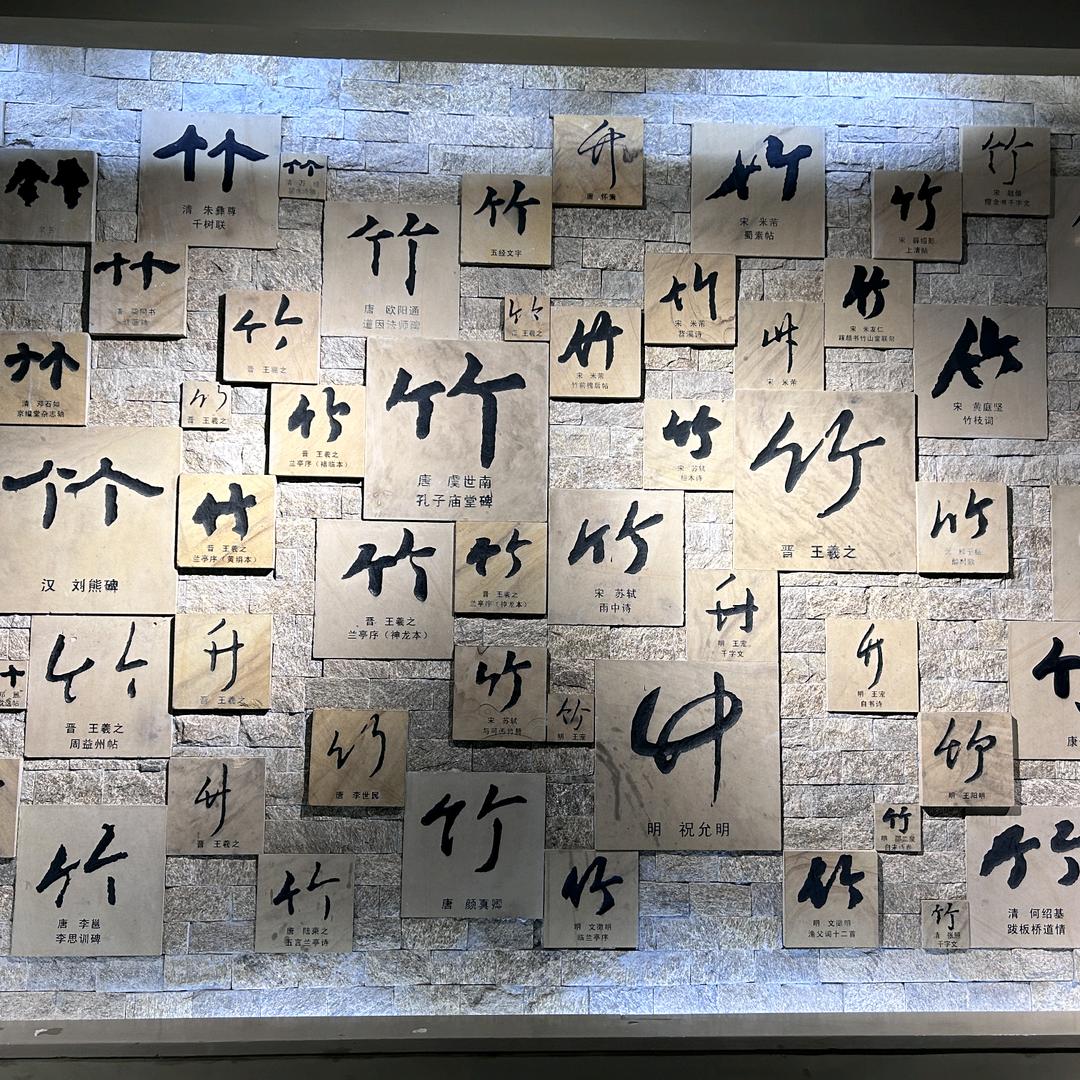 竹
清 朱彝尊
千树联
竹
竹
唐 怀素
竹
宋 米芾
蜀素帖
竹
竹
五经文字
竹
宋 薛绍彭
上清帖
竹
唐 欧阳通
道因法师碑
竹
竹
宋 米芾
苕溪诗
竹
宋 米友仁
竹
晋 王羲之
竹
晋 王羲之
竹
宋 米芾
竹前槐后帖
竹
宋 米芾
竹
宋 黄庭坚
竹枝词
竹
清 邓石如
竹
晋 王羲之
竹
晋 王羲之
兰亭序（褚临本）
竹
唐 虞世南
孔子庙堂碑
竹
宋 苏轼
竹
晋 王羲之
竹
汉 刘熊碑
竹
晋 王羲之
兰亭序（黄绢本）
竹
晋 王羲之
兰亭序（神龙本）
竹
晋 王羲之
兰亭序（神龙本）
竹
宋 苏轼
雨中诗
竹
竹
明 王宠
千字文
竹
晋 王羲之
周益州帖
竹
晋 王羲之
竹
宋 苏轼
竹
明 王宠
竹
明 祝允明
竹
明 王宠
自书诗
竹
唐 李世民
竹
明 王阳明
竹
晋 王羲之
竹
唐 李邕
李思训碑
竹
唐 陆柬之
五言兰亭诗
竹
唐 颜真卿
竹
明 文徵明
临兰亭序
竹
明 文徵明
渔父词十二首
竹
竹
清 张照
千字文
竹
清 何绍基
跋板桥道情